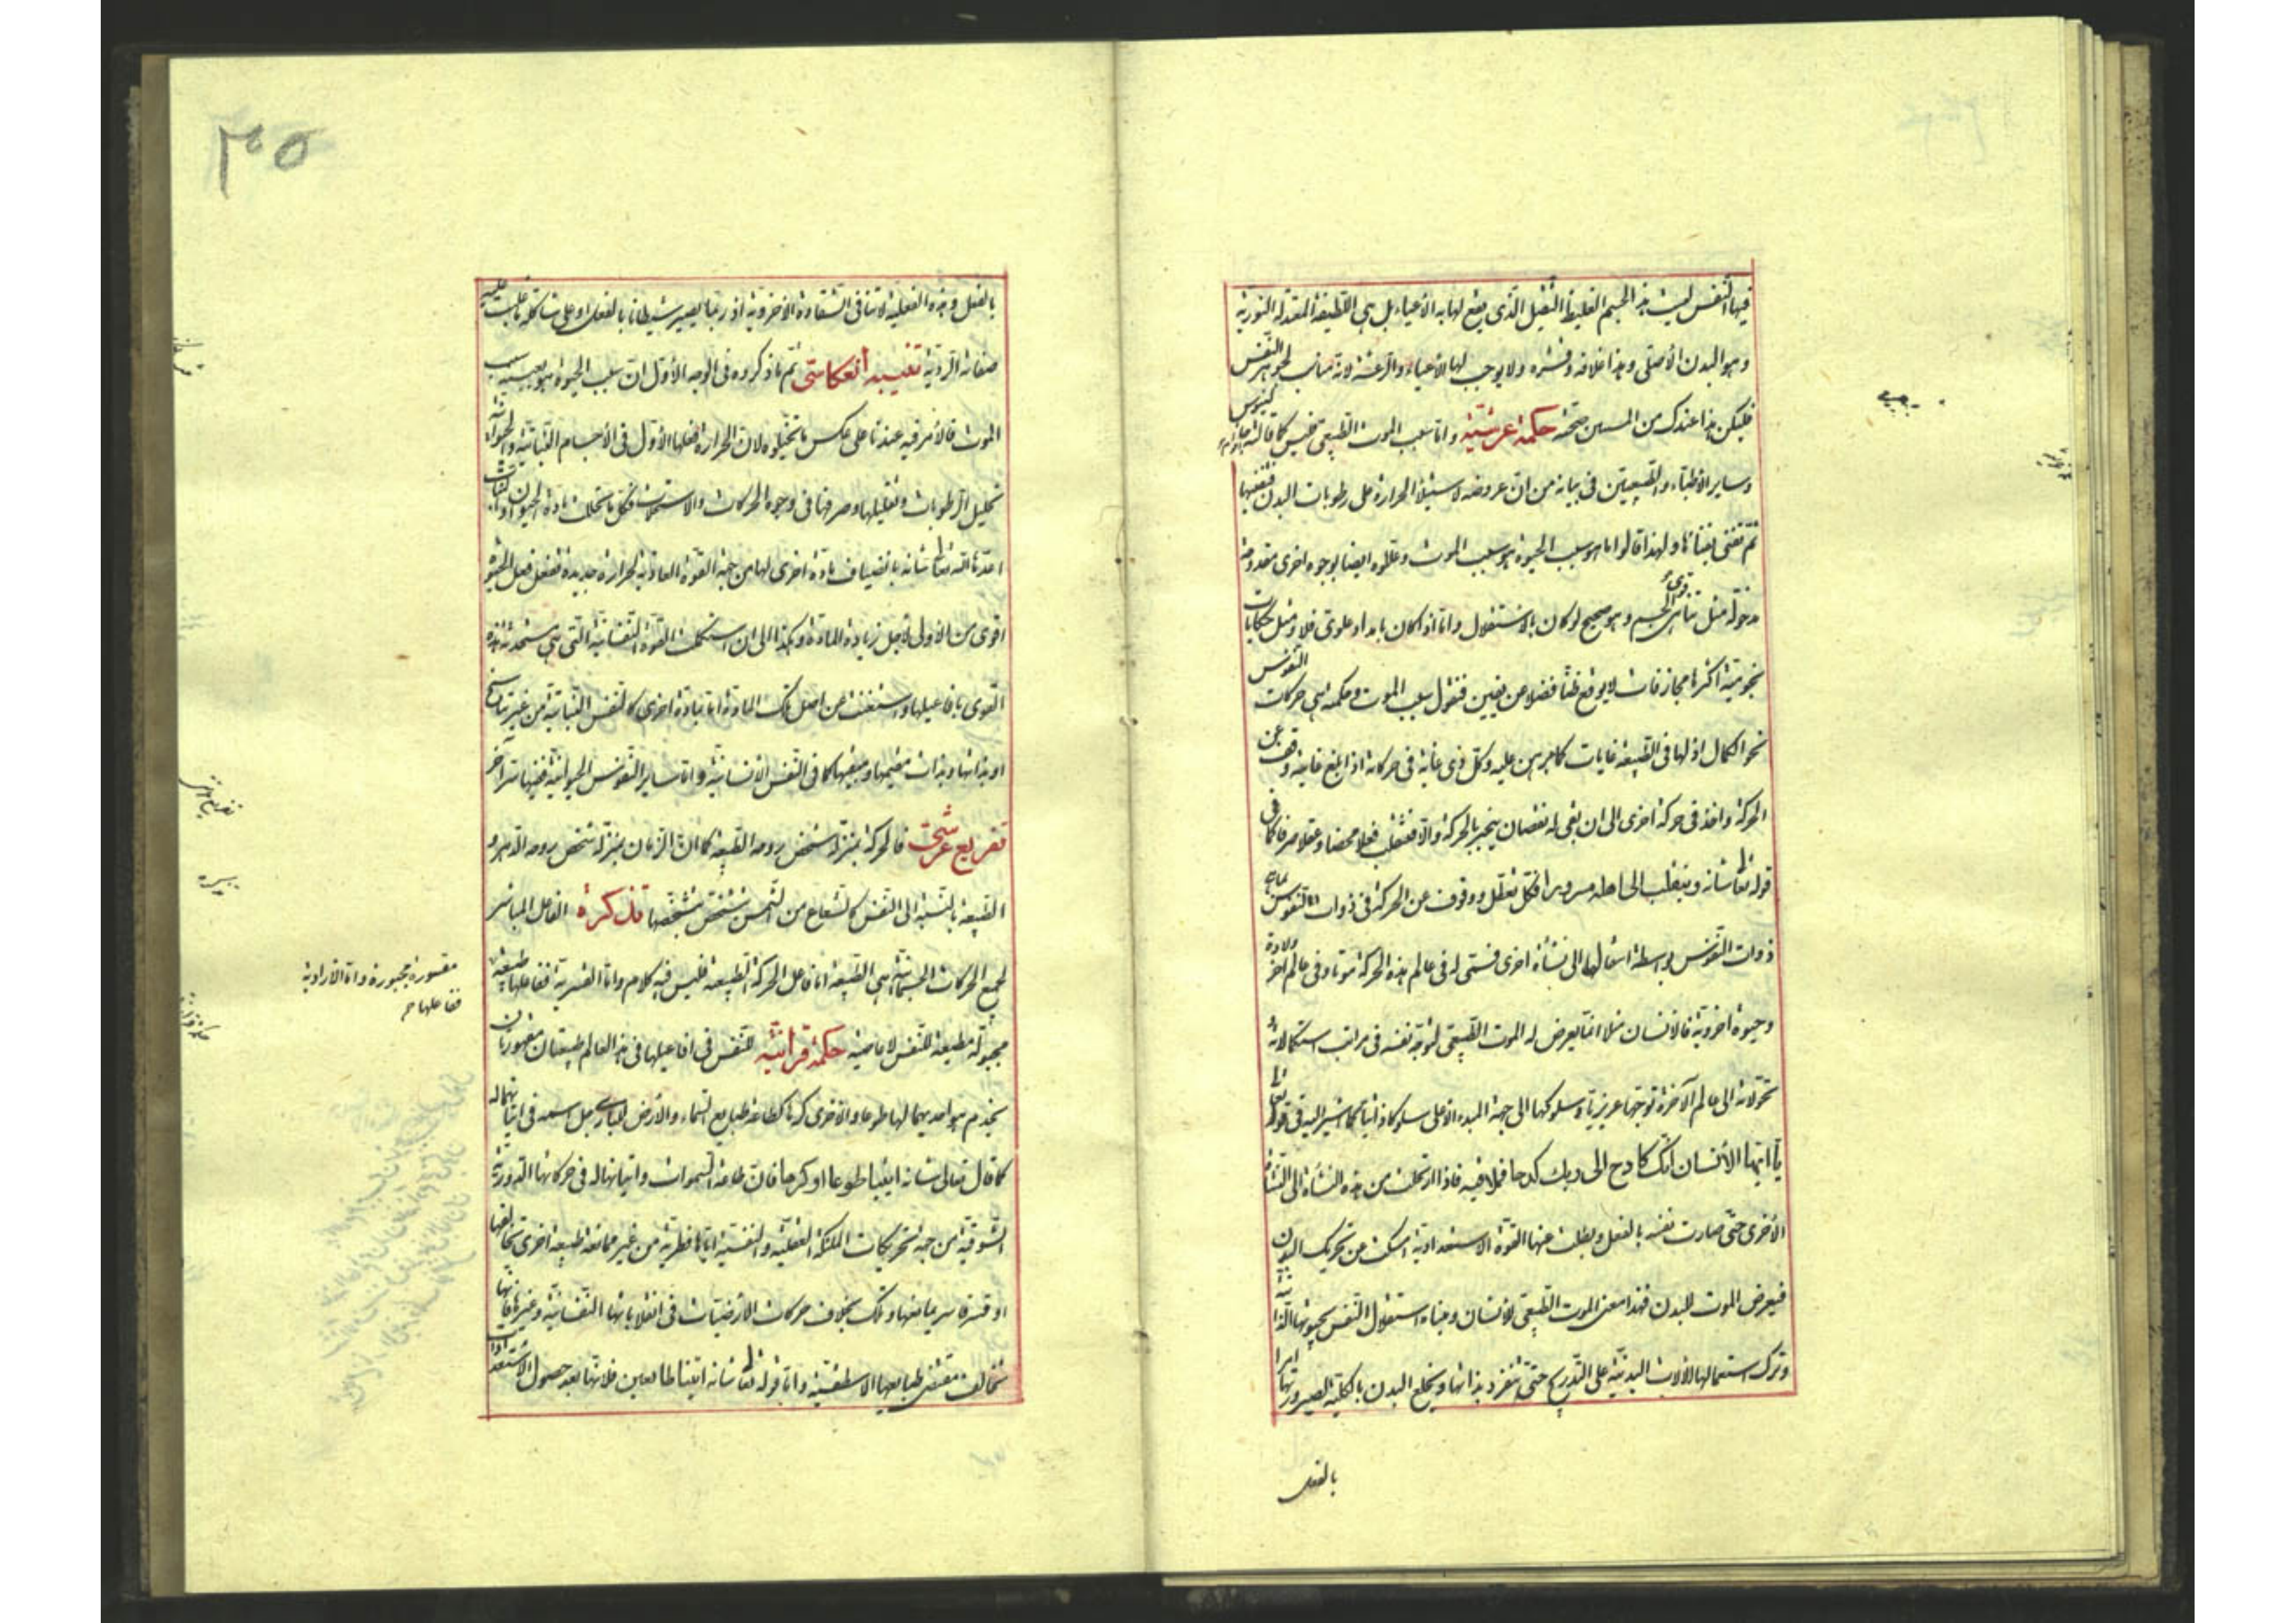 فيها النفس ليست هذا الجسم الغليظ الثقيل الذى يقع لها به الأعياء بل هى اللطيفة المعتدلة النورية
وهو البدن الأصلى وهذا غلافه وقشره ولا يوجب لها الأعياء والرعشة لانه مناسب لجوهر النفس
فليكن هذا عندك من المستبين صحته حكمة عرشيّة واما سبب الموت الطبيعى فليس كما قالته جالينوس
وساير الاطباء والطبيعيين فى بيانه من ان عروضه لاستيلاء الحرارة على رطوبات البدن فتفنيها
ثم تفنى بفنائها ولهذا قالوا ما هو سبب الحيوة هو سبب الموت وعللوه ايضا بوجوه اخرى مقدوحة
مدخولة مثل تناهى قوى الجسم وهو صحيح لو كان بالاستقلال واما اذا كان بامداد علوى فلا ومثل حكايات
نجومية اكثرها مجازفات لا يوقع ظنا فضلا عن يقين فنقول سبب الموت وحكمته هى حركات النفوس
نحو الكمال اذ لها فى الطبيعة غايات كما برهن عليه وكل ذى غاية فى حركاته اذا بلغ غايته وقف عن
الحركة واخذ فى حركة اخرى الى ان بقى له نقصان ينجبر بالحركة والا فتنقلب فعلا محضا وعقلا صرفا كما فى
قوله تعا شانه وينقلب الى اهله مسرورا فكل تعقل ووقوف عن الحركة فى ذوات النفوس
ذوات النفوس بواسطة انتقالها الى نشأة اخرى فتسمى له فى عالم هذه الحركة موتا وفى عالم اخر ولادة
وحيوة اخروية فالانسان مثلا انما يعرض له الموت الطبيعى لتوجه نفسه فى مراتب استكمالاته
تحولاته الى عالم الآخرة توجها غريزيا وسلوكها الى جهة المبدء الاعلى سلوكا ذاتيا كما اشير اليه فى قوله تعا
يا ايّها الأنسان انك كادح الى ربك كدحا فملاقيه فاذا ارتحلت من هذه النشأة الى النشأة
الأخرى حتى صارت نفسه بالفعل وبطلت عنها القوة الاستعدادية امسكت عن تحريك البدن
فيعرض الموت للبدن فهذا معنى الموت الطبيعى للانسان ومبناه استقلال النفس بحيوتها الذاتية
وترك استعمالها الالات البدنية على التدريج حتى تنفرد بذاتها وتخلع البدن بالكلية لصيرورتها امرا
بالفعل
٣٠٥
بالفعل وهذه الفعلية لا تنافى الشقاوة الاخروية اذ ربما يصير شيطانا بالفعل او على شاكلة ما غلبت عليه
صفاته الردية تغييبه انعكاسى ثم ما ذكروه فى الوجه الأول ان سبب الحيوة هو بعينه سبب
الموت فالأمر فيه عندنا على عكس ما تخيلوه لان الحرارة فعلها الأول فى الأجسام النباتية والحيوانية
تحليل الرطوبات وتقليلها وصرفها فى وجوه الحركات والاستحالات فكل ما تحللت مادة الحيوان او النبات
امدها الله تعا شانه بانضياف مادة اخرى لها من جهة القوة الغاذية لحرارة جديدة تفعل فعل الحيوة
اقوى من الاولى لأجل زيادة المادة وهكذا الى ان استكملت القوة النفسانية التى هى مستخدمة هذه
القوى بافاعيلها واستغنت عن اصل تلك المادة اما بمادة اخرى كالنفس النباتية من غير تناسخ
او بذاتها وبذات مقيمها ومبقيها كما فى النفس الانسانية واما ساير النفوس الحيوانية ففيها سر آخر
تفريع عرشىّ فالحركة بمنزلة شخص روحه الطبيعة كما ان الزمان بمنزلة شخص روحه الدهر و
الطبيعة بالنسبة الى النفس كالشعاع من الشمس تشخص بتشخصها تذكرة الفاعل المباشر
لجميع الحركات الجسمانية هى الطبيعة اما فاعل الحركة الطبيعية فليس فيه كلام واما القسرية ففاعلها طبيعة
مجبولة مطيعة للنفس لا عاصية حكمة قرانيّة للنفس فى افاعيلها فى هذا العالم طبيعتان مقهورتان
يخدم هو احديهما لها طوعا والاخرى كرها كطاعة طبايع السماء والأرض للبارى جل اسمه فى اتيانهما له
كما قال تعالى شانه ائتيا طوعا او كرها فان طاعة السموات واتيانها له فى حركاتها الدورية
الشوقية من جهة تحريكات الملئكة العقلية والنفسية اياها فطرية من غير ممانعة طبيعة اخرى تخالفها
او قسر قاسر يمانعها وذلك بخلاف حركات الارضيات فى انقلاباتها النفسانية وغيرها فانها
تخالف مقتضى طبايعها الاسطقسية واما قوله تعا شانه اتينا طائعين فلانهما بعد حصول الاستعداد
مقسورة مجبورة واما الارادية
ففاعلها